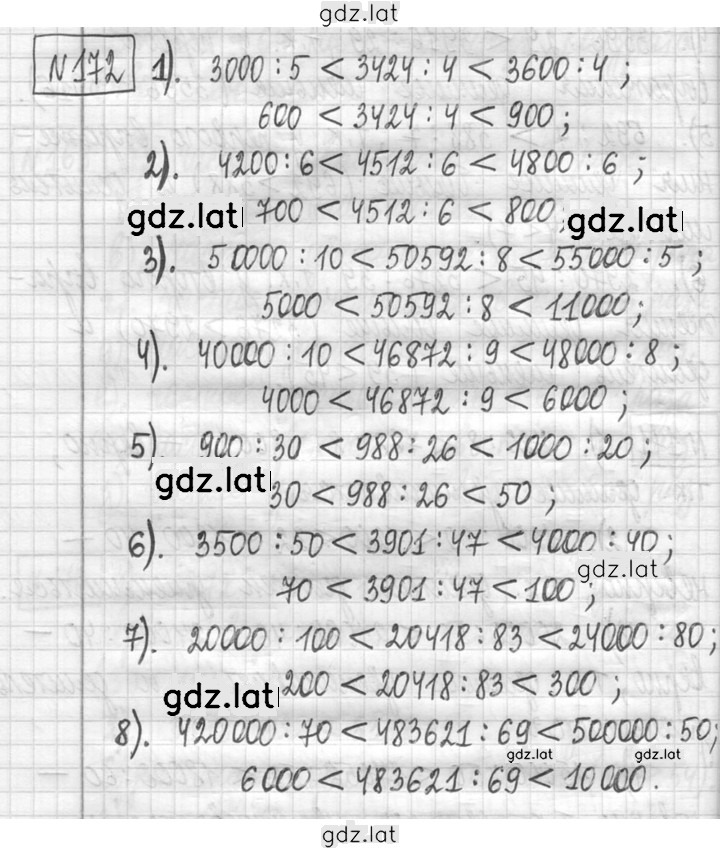 gdz.lat
N172 1). 3000 : 5 < 3424 : 4 < 3600 : 4 ;
600 < 3424 : 4 < 900 ;
2). 4200 : 6 < 4512 : 6 < 4800 : 6 ;
gdz.lat 700 < 4512 : 6 < 800 ; gdz.lat
3). 50000 : 10 < 50592 : 8 < 55000 : 5 ;
5000 < 50592 : 8 < 11000 ;
4). 40000 : 10 < 46872 : 9 < 48000 : 8 ;
4000 < 46872 : 9 < 6000 ;
5). 900 : 30 < 988 : 26 < 1000 : 20 ;
gdz.lat 30 < 988 : 26 < 50 ;
6). 3500 : 50 < 3901 : 47 < 4000 : 40 ;
gdz.lat
70 < 3901 : 47 < 100 ;
7). 20000 : 100 < 20418 : 83 < 24000 : 80 ;
gdz.lat 200 < 20418 : 83 < 300 ;
8). 420000 : 70 < 483621 : 69 < 500000 : 50 ;
gdz.lat gdz.lat
6000 < 483621 : 69 < 10000 .
gdz.lat